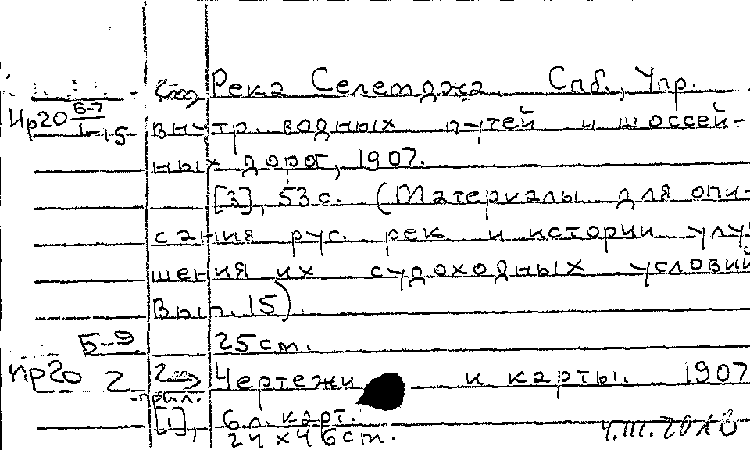 Река Селемджа. Спб., Упр.
Ир20 Б-7 1-15 внутр. водных путей и шоссей-
ных дорог, 1907.
[3], 53 с. (Материалы для опи-
сания рус. рек и истории улуч-
шения их судоходных условий
Вып. 15).
Б-9 25 см.
Ир20 2 Чертежи и карты. 1907
[1], 6 л. карт.
24 х 46 см.